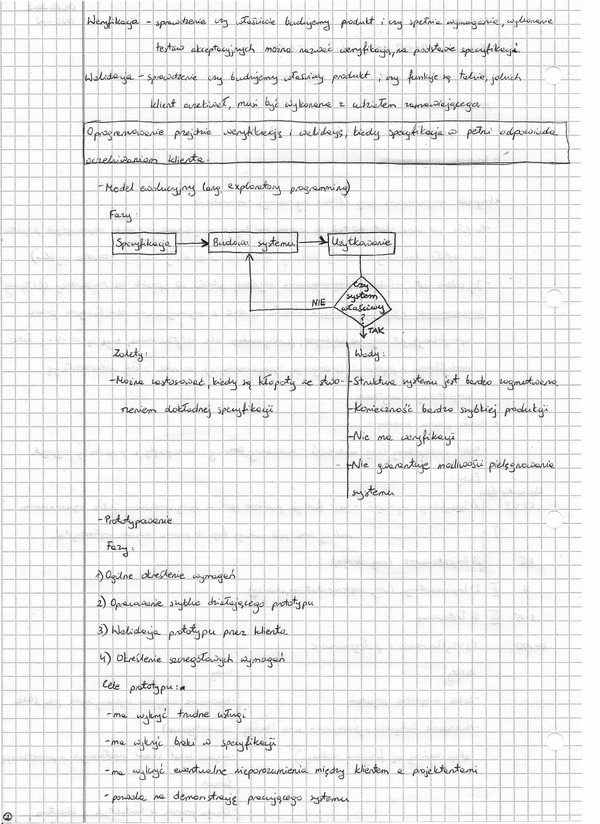 Weryfikacja - sprawdzenie czy właściwie budujemy produkt i czy spełnia wymagania, wykonanie
testów akceptacyjnych można nazwać weryfikacją, na podstawie specyfikacji.
Walidacja - sprawdzenie czy budujemy właściwy produkt i czy funkcje są takie, jakich
klient oczekiwał, musi być wykonana z udziałem zamawiającego.
Oprogramowanie przejdzie weryfikację i walidację, kiedy specyfikacja w pełni odpowiada
oczekiwaniom klienta.
- Model ewolucyjny (ang. exploratory programming)
Fazy:
Specyfikacja
Budowa systemu
Użytkowanie
Czy
system
właściwy
?
NIE
TAK
Zalety:
- Można zastosować, kiedy są kłopoty ze stwo-
rzeniem dokładnej specyfikacji
Wady:
- Struktura systemu jest bardzo zagmatwana
- Konieczność bardzo szybkiej produkcji
- Nie ma weryfikacji
- Nie gwarantuje możliwości pielęgnowania
systemu
- Prototypowanie
Fazy:
1) Ogólne określenie wymagań
2) Opracowanie szybko działającego prototypu
3) Walidacja prototypu przez klienta
4) Określenie szczegółowych wymagań
Cele prototypu:
- ma wykryć trudne usługi
- ma wykryć braki w specyfikacji
- ma wykryć ewentualne nieporozumienia między klientem a projektantami
- pozwala na demonstrację pracującego systemu